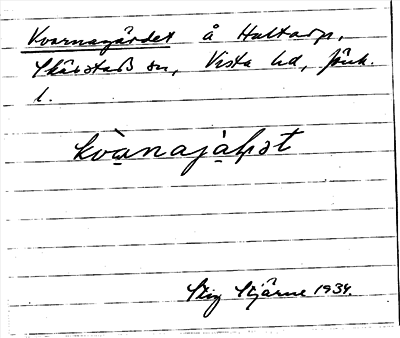 Kvarnagärdet å Hultarp,
Skärstads sn, Vista hd, Jönk.
l.
kvànajàḷṣt
Stig Stjärne 1934.